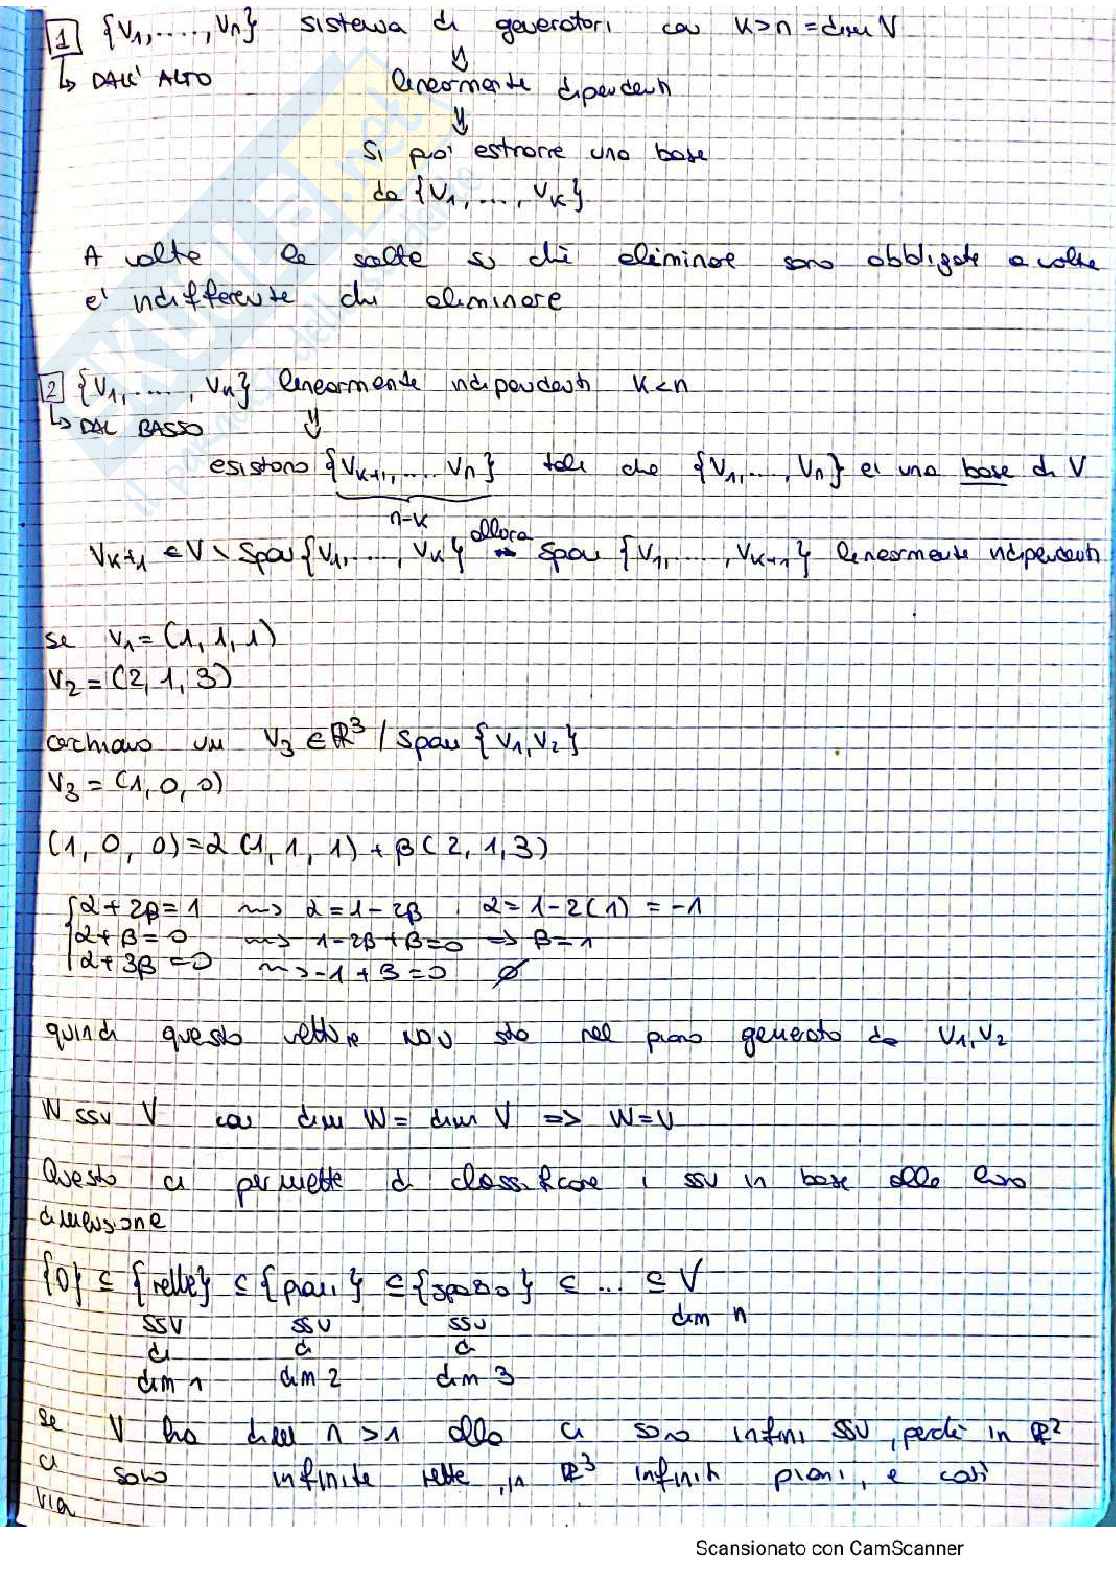 1 {V1,....,Vn} sistema di generatori con K>n=dim V
↳ DALL' ALTO
⇓
linearmente dipendenti
⇓
Si puo' estrarre una base
da {V1,...,VK}
A volte le scelte su chi eliminare sono obbligate a volte
e' indifferente chi eliminare
2 {V1,....,Vk} linearmente indipendenti K<n
↳ DAL BASSO
⇓
esistono {VK+1,....Vn} tali che {V1,...,Vn} e' una base di V
n-k
VK+1 ∈ V \ Span{V1,....,VK} allora ⇝ Span {V1,....,VK+1} linearmente indipendenti
se V1=(1,1,1)
V2=(2,1,3)
cerchiamo un V3 ∈ℝ³/span{V1,V2}
V3=(1,0,0)
(1,0,0)=α(1,1,1)+β(2,1,3)
α+2β=1 ⇝ α=1-2β α=1-2(1)=-1
α+β=0 ⇝ 1-2β+β=0 ⇒ β=1
α+3β=0 ⇝ -1+3=0 ∅
quindi questo vettore NON sta nel piano generato da V1,V2
W ssv V con dim W= dim V => W=V
Questo ci permette di classificare i ssv in base alla loro
dimensione
{0} ⊆ {rette} ⊆ {piani} ⊆ {spazio} ⊆ ... ⊆ V
SSV SSV SSV dim n
di di di
dim 1 dim 2 dim 3
se V ha dim n>1 allo ci sono infiniti SSV, perchè in ℝ²
ci sono infinite rette, in ℝ³ infiniti piani, e così
via
Scansionato con CamScanner